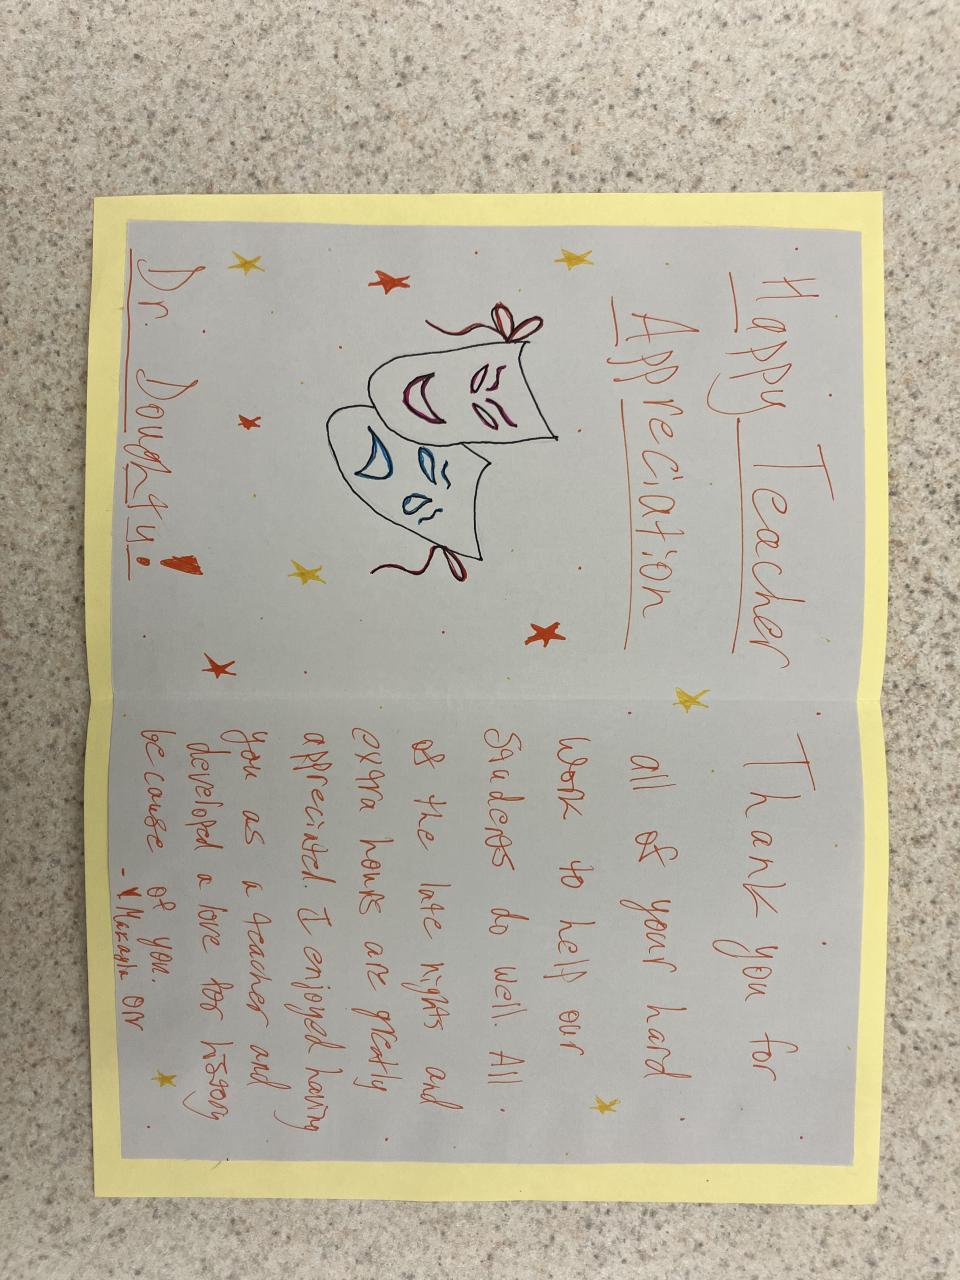 Happy Teacher
Appreciation
Dr. Doughty!
Thank you for
all of your hard
work to help our
students do well. All
of the late nights and
extra hours are greatly
appreciated. I enjoyed having
you as a teacher and
developed a love for history
because of you.
- Makayla Orr